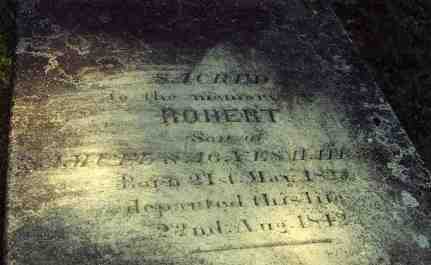 SACRED
to the memory
ROBERT
Son of
SAMUEL & AGNES
Born 21st May
departed this life
22nd Aug. 1842